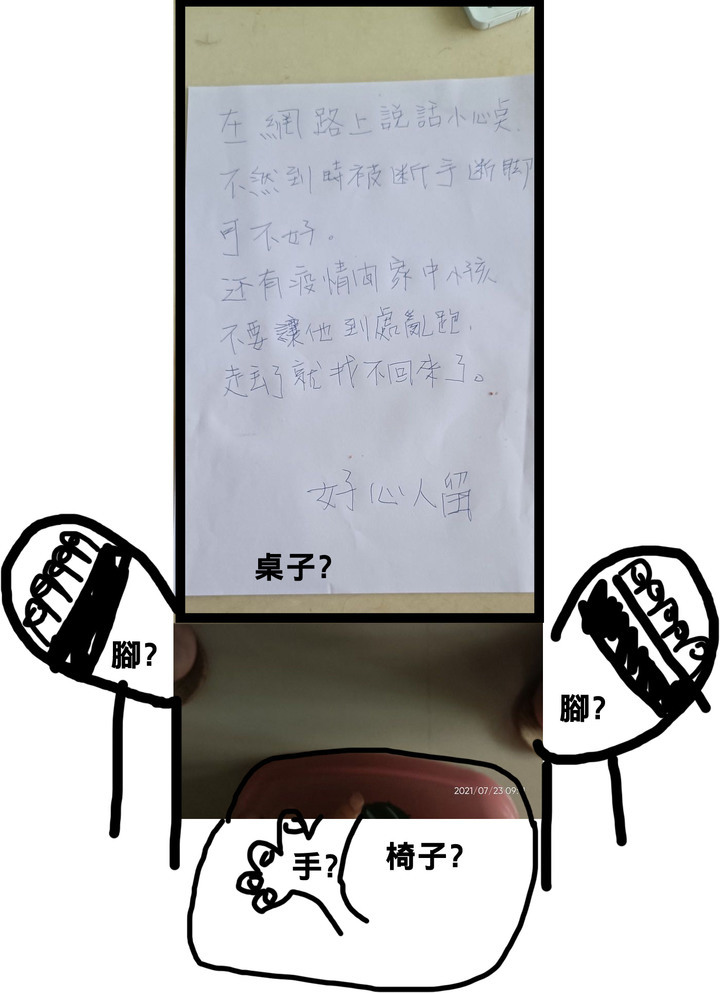 在網路上說話小心桌.
不然到時被断手断脚
可不好。
还有疫情间家中小孩
不要讓他到處亂跑.
走丟了就找不回來了。
好心人留
桌子?
腳?
腳?
2021/07/23 09:
手?
椅子?